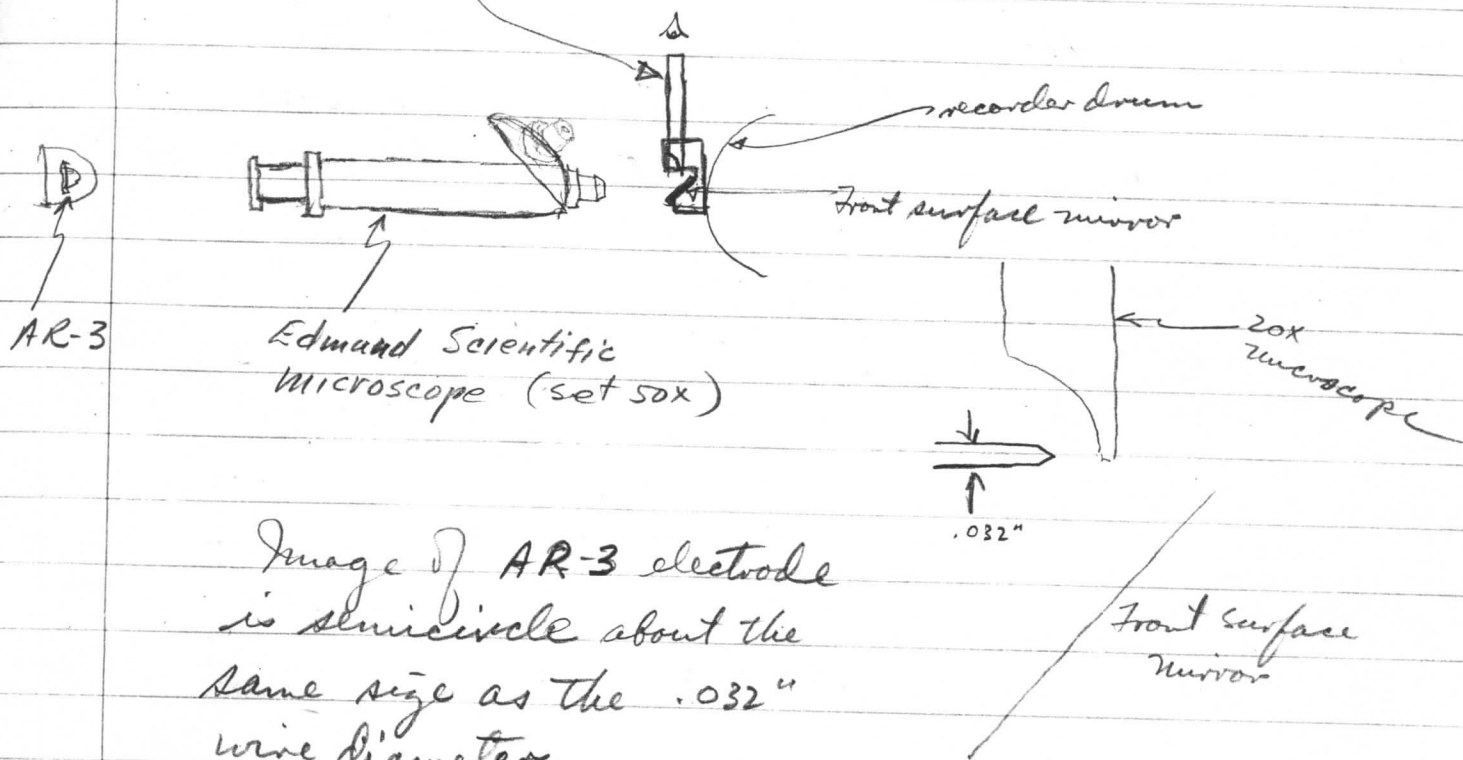 recorder drum
Front surface mirror
AR-3
Edmund Scientific
Microscope (set 50x)
20x
microscope
.032"
Image of AR-3 electrode
is semicircle about the
same size as the .032"
wire diameter
Front Surface
Mirror